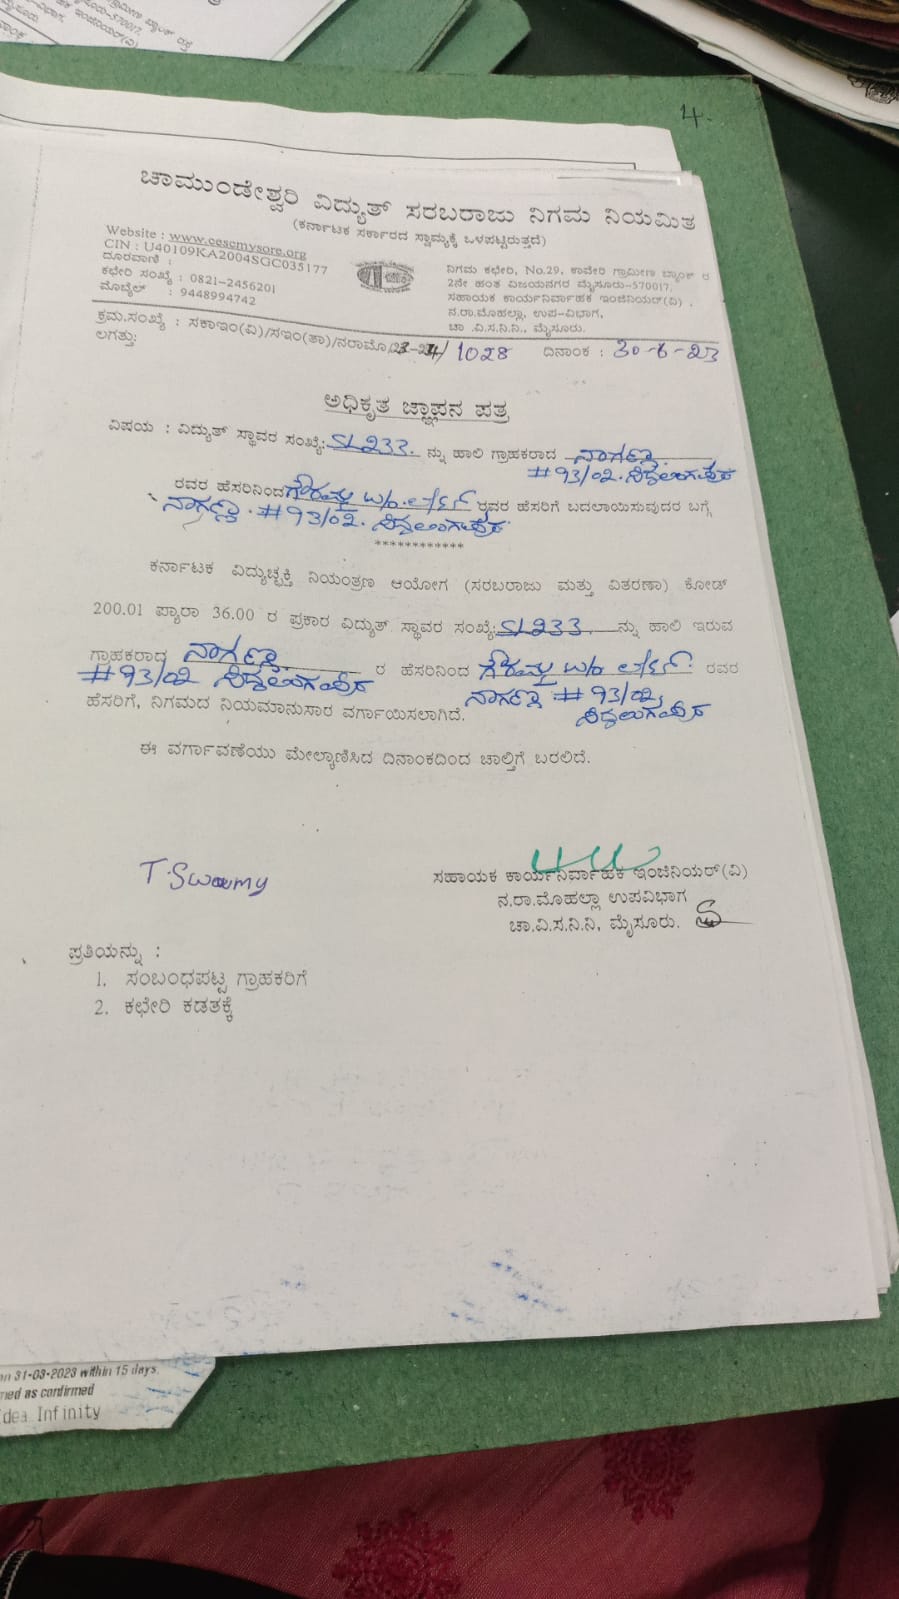 4.
ಚಾಮುಂಡೇಶ್ವರಿ ವಿದ್ಯುತ್ ಸರಬರಾಜು ನಿಗಮ ನಿಯಮಿತ
(ಕರ್ನಾಟಕ ಸರ್ಕಾರದ ಸ್ವಾಮ್ಯಕ್ಕೆ ಒಳಪಟ್ಟಿರುತ್ತದೆ)
Website : www.cescmysore.org
CIN : U40109KA2004SGC035177
ದೂರವಾಣಿ :
ಕಛೇರಿ ಸಂಖ್ಯೆ : 0821-2456201
ಮೊಬೈಲ್ : 9448994742
ನಿಗಮ ಕಛೇರಿ, No.29, ಕಾವೇರಿ ಗ್ರಾಮೀಣ ಬ್ಯಾಂಕ್ ರ
2ನೇ ಹಂತ ವಿಜಯನಗರ ಮೈಸೂರು-570017.
ಸಹಾಯಕ ಕಾರ್ಯನಿರ್ವಾಹಕ ಇಂಜಿನಿಯರ್(ವಿ) ,
ನ.ರಾ.ಮೊಹಲ್ಲಾ, ಉಪ-ವಿಭಾಗ,
ಚಾ .ವಿ.ಸ.ನಿ.ನಿ., ಮೈಸೂರು.
ಕ್ರಮ.ಸಂಖ್ಯೆ : ಸಕಾಇಂ(ವಿ)/ಸಇಂ(ತಾ)/ನರಾಮೊ/23-24/1028 ದಿನಾಂಕ : 30-6-23
ಲಗತ್ತು:
ಅಧಿಕೃತ ಜ್ಞಾಪನ ಪತ್ರ
ವಿಷಯ : ವಿದ್ಯುತ್ ಸ್ಥಾವರ ಸಂಖ್ಯೆ: SL233. ನ್ನು ಹಾಲಿ ಗ್ರಾಹಕರಾದ ನಾಗಣ್ಣ
#93/02. ಸಿದ್ದಲಿಂಗಪುರ
ರವರ ಹೆಸರಿನಿಂದ ಗೌರಮ್ಮ w/o ರವರ ಹೆಸರಿಗೆ ಬದಲಾಯಿಸುವುದರ ಬಗ್ಗೆ
ನಾಗಣ್ಣ. #93/02. ಸಿದ್ದಲಿಂಗಪುರ
************
ಕರ್ನಾಟಕ ವಿದ್ಯುಚ್ಛಕ್ತಿ ನಿಯಂತ್ರಣ ಆಯೋಗ (ಸರಬರಾಜು ಮತ್ತು ವಿತರಣಾ) ಕೋಡ್
200.01 ಪ್ಯಾರಾ 36.00 ರ ಪ್ರಕಾರ ವಿದ್ಯುತ್ ಸ್ಥಾವರ ಸಂಖ್ಯೆ: SL233. ನ್ನು ಹಾಲಿ ಇರುವ
ಗ್ರಾಹಕರಾದ ನಾಗಣ್ಣ ರ ಹೆಸರಿನಿಂದ ಗೌರಮ್ಮ w/o ರವರ
#93/02 ಸಿದ್ದಲಿಂಗಪುರ ನಾಗಣ್ಣ #93/02,
ಹೆಸರಿಗೆ, ನಿಗಮದ ನಿಯಮಾನುಸಾರ ವರ್ಗಾಯಿಸಲಾಗಿದೆ. ಸಿದ್ದಲಿಂಗಪುರ
ಈ ವರ್ಗಾವಣೆಯು ಮೇಲ್ಕಾಣಿಸಿದ ದಿನಾಂಕದಿಂದ ಚಾಲ್ತಿಗೆ ಬರಲಿದೆ.
T.Swamy
ಸಹಾಯಕ ಕಾರ್ಯನಿರ್ವಾಹಕ ಇಂಜಿನಿಯರ್(ವಿ)
ನ.ರಾ.ಮೊಹಲ್ಲಾ ಉಪವಿಭಾಗ
ಚಾ.ವಿ.ಸ.ನಿ.ನಿ, ಮೈಸೂರು.
ಪ್ರತಿಯನ್ನು :
1. ಸಂಬಂಧಪಟ್ಟ ಗ್ರಾಹಕರಿಗೆ
2. ಕಛೇರಿ ಕಡತಕ್ಕೆ
on 31-03-2023 within 15 days
med as confirmed
Idea Infinity